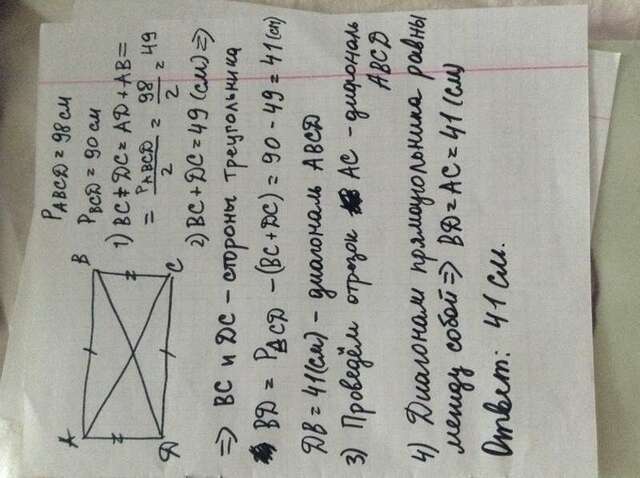 P ABCD = 98 см
P BCD = 90 см
1) BC + DC = AD + AB =
= P ABCD / 2 = 98 / 2 = 49
2) BC + DC = 49 (см) =>
A
B
C
D
=> BC и DC - стороны треугольника
BD = P BCD - (BC + DC) = 90 - 49 = 41 (см)
DB = 41 (см) - диагональ ABCD
3) Проведём отрезок AC - диагональ
ABCD
4) Диагонали прямоугольника равны
между собой => BD = AC = 41 (см)
Ответ: 41 см.